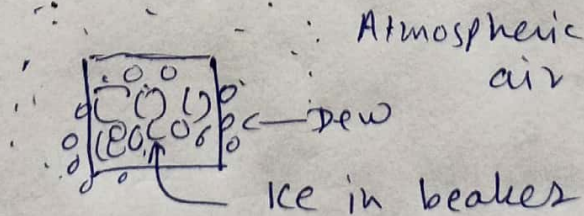 Atmospheric
air
Dew
Ice in beaker